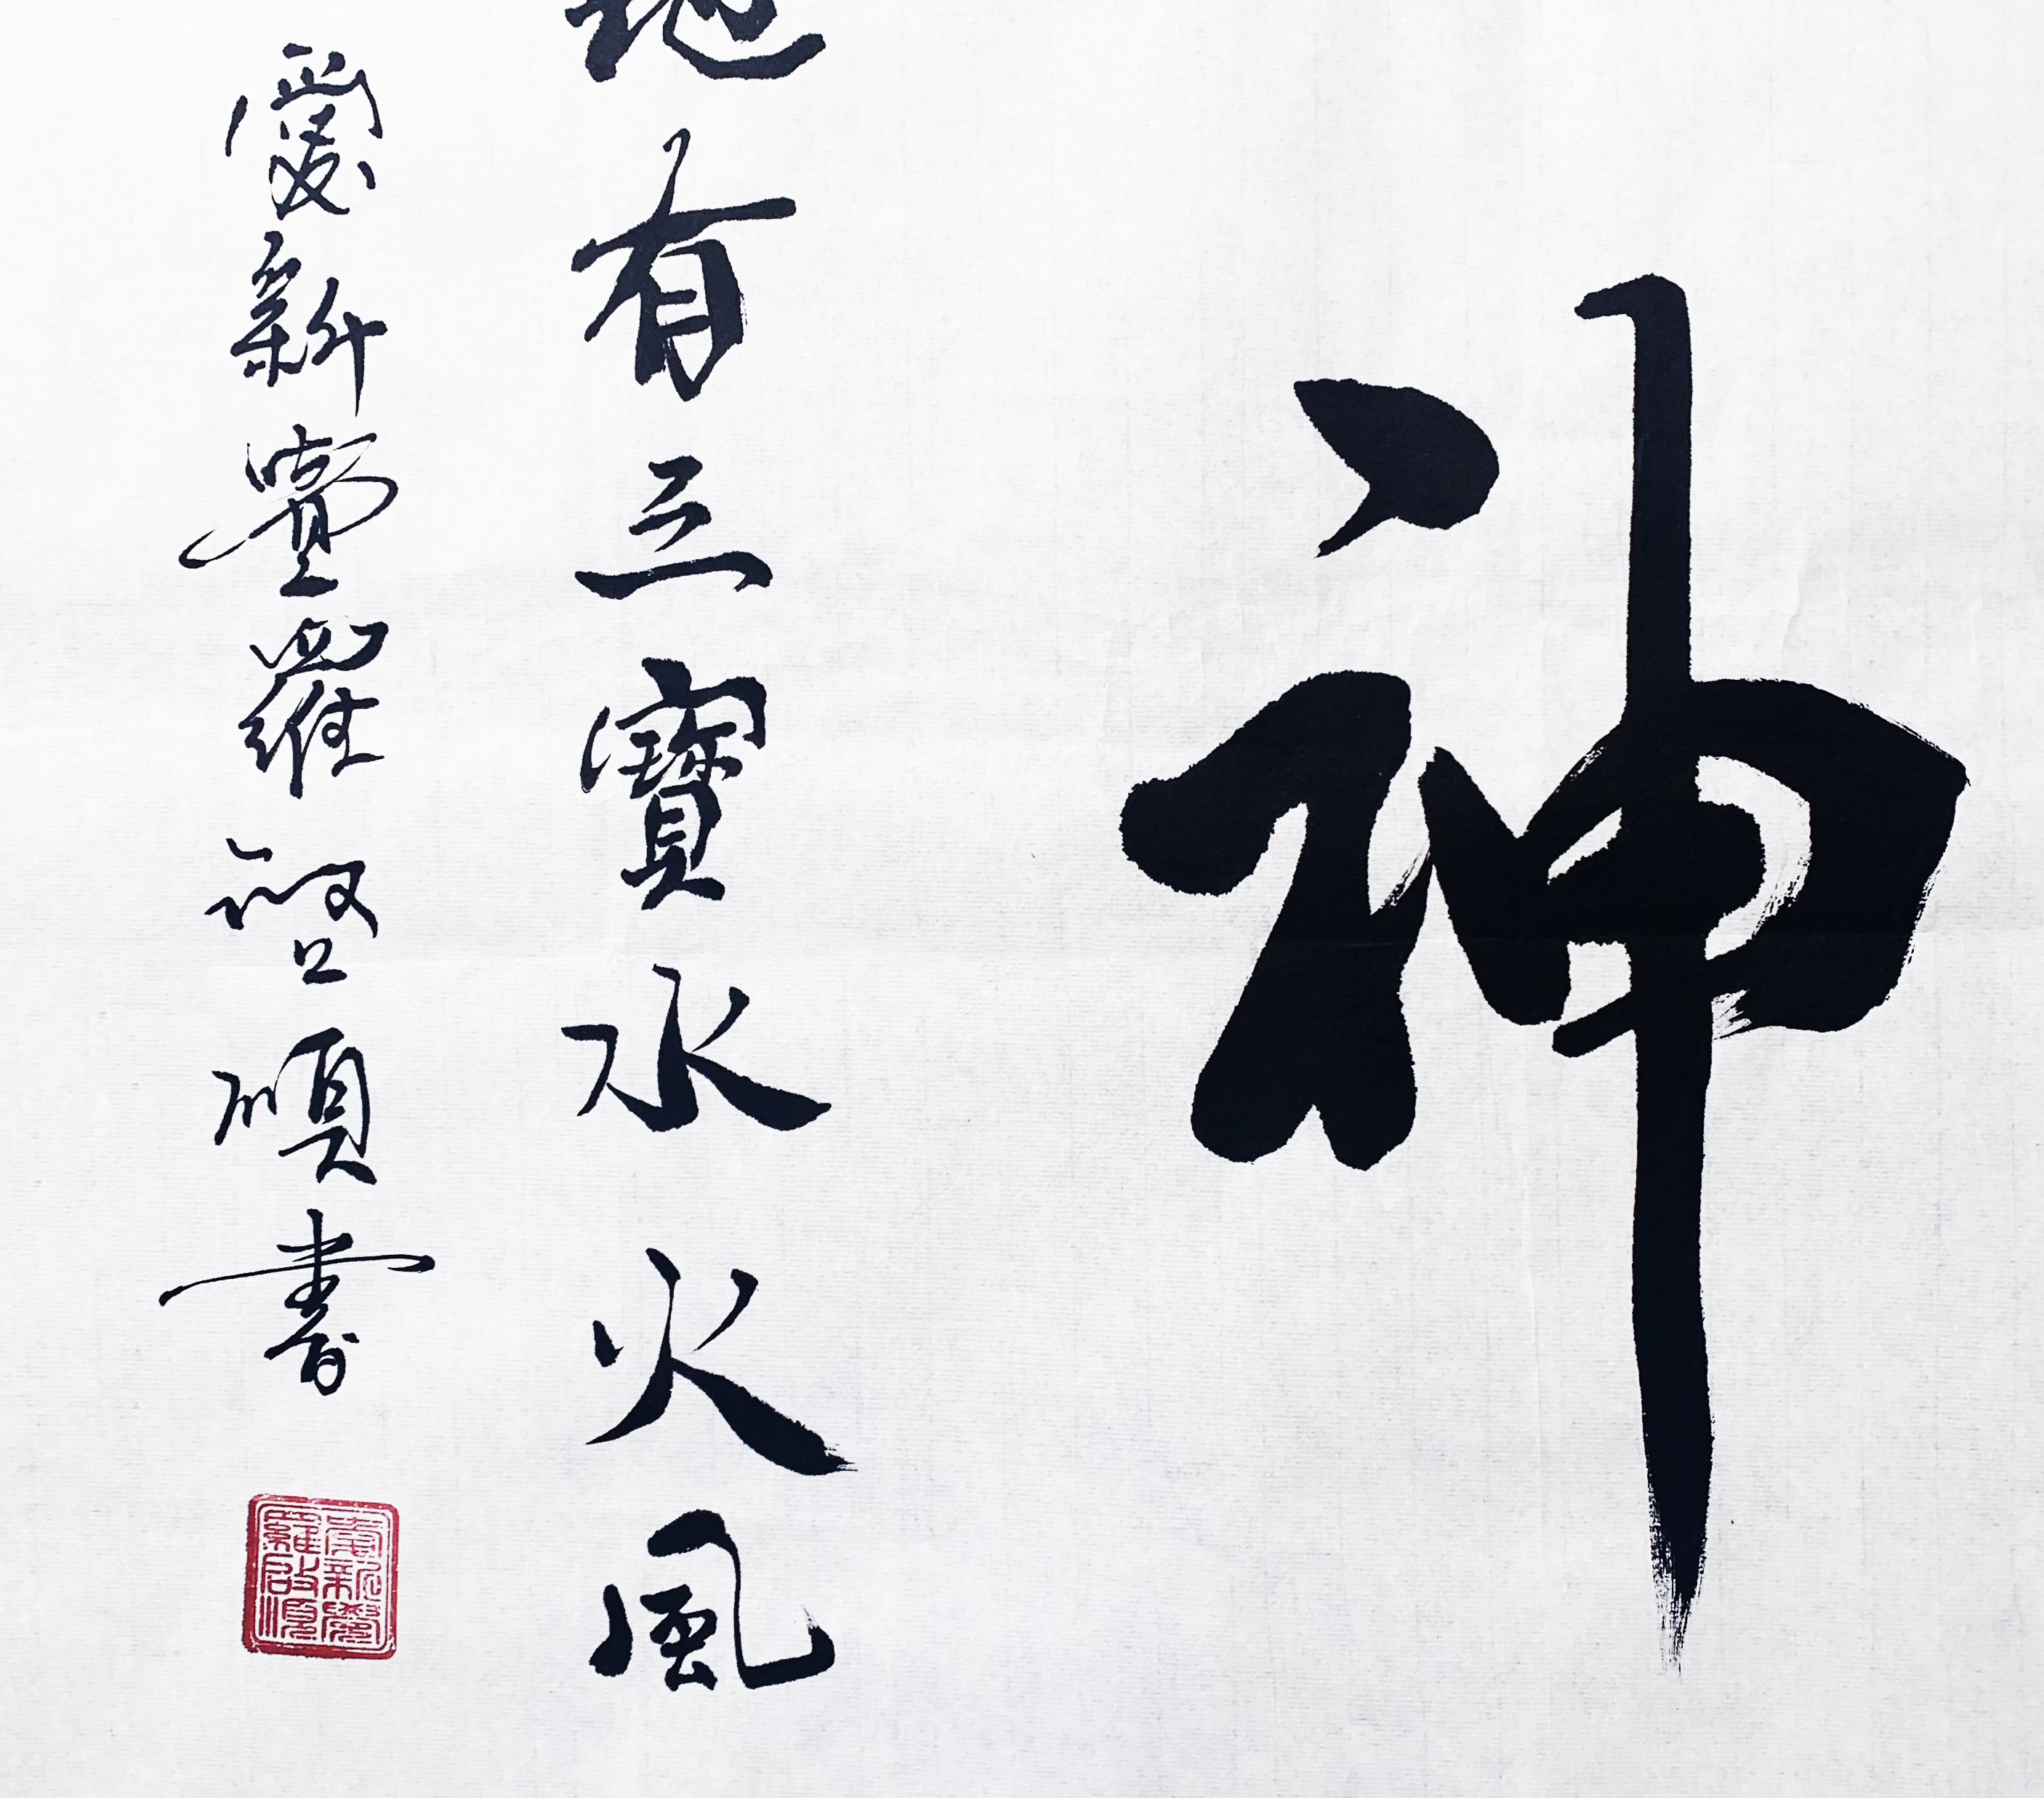 神
地有三寳水火風
愛新覺羅啓順書
愛新覺
羅啟順